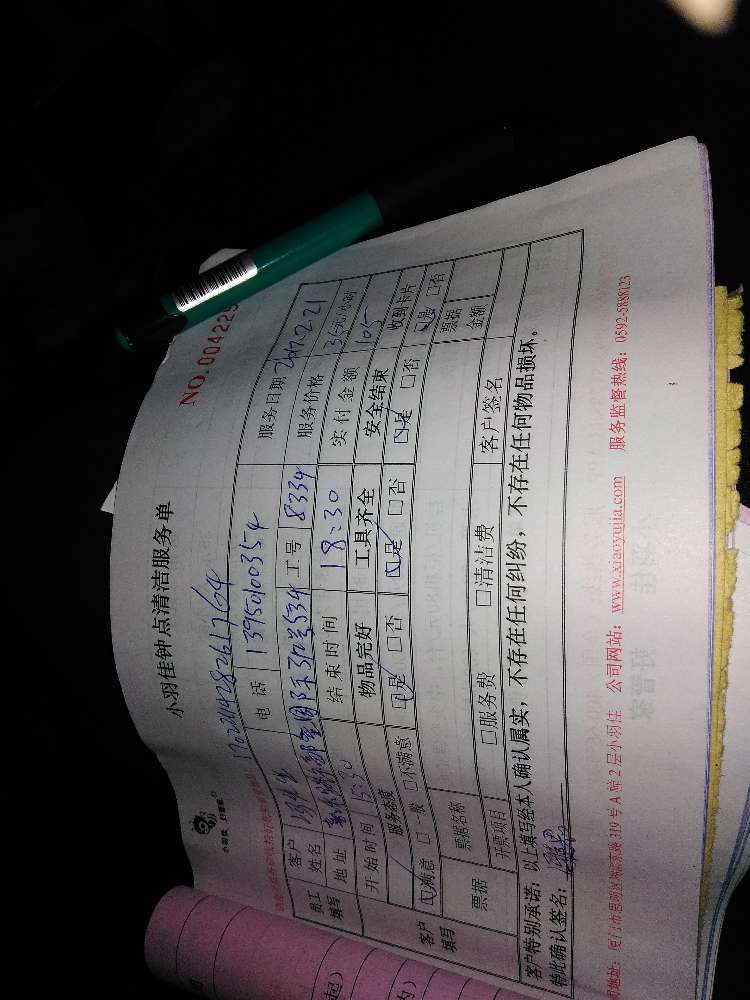 小羽佳钟点清洁服务单
NO.004225
电话 13950100354 服务日期 2017.2.21
员工填写 客户姓名 工号 8334 服务价格 35元/小时
地址
开始时间 15:30 结束时间 18:30 实付金额 105
客户填写 服务态度 物品完好 工具齐全 安全结束 收到卡片
☑满意 □一般 □不满意 ☑是 □否 ☑是 □否 ☑是 □否 ☑是 □否
票据 票据名称 票据金额
开票项目 □服务费 □清洁费 客户签名
客户特别承诺：以上填写经本人确认属实，不存在任何纠纷，不存在任何物品损坏。
特此确认签名：
319号A幢2层小羽佳 公司网站：www.xiaoyujia.com 服务监督热线：0592-5888123